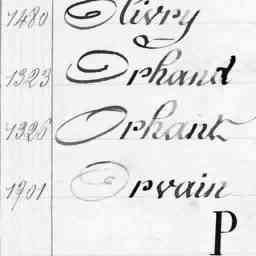 1480 Olivry
1323 Orhand
1326 Orhant
1901 Orvain
P